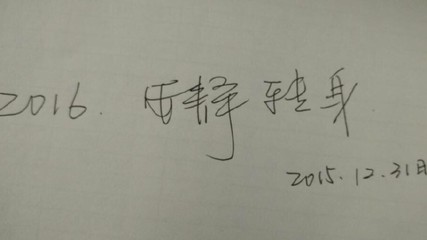 2016. 静转身
2015.12.31日